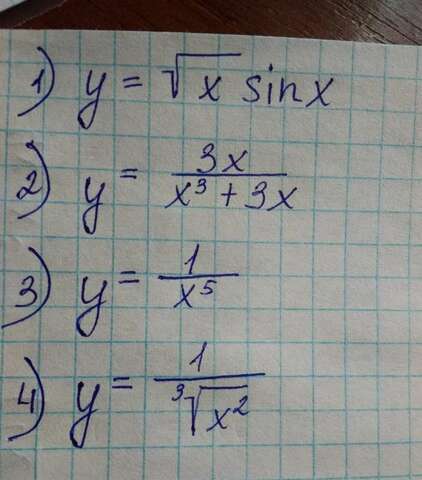 1) y = √x sinx
2) y = 3x / x³ + 3x
3) y = 1 / x⁵
4) y = 1 / ³√x²